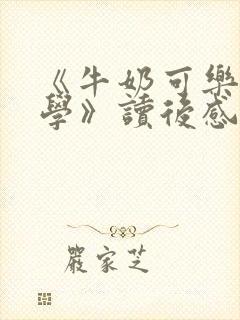 《牛奶可樂
學》讀後感
嚴家芝